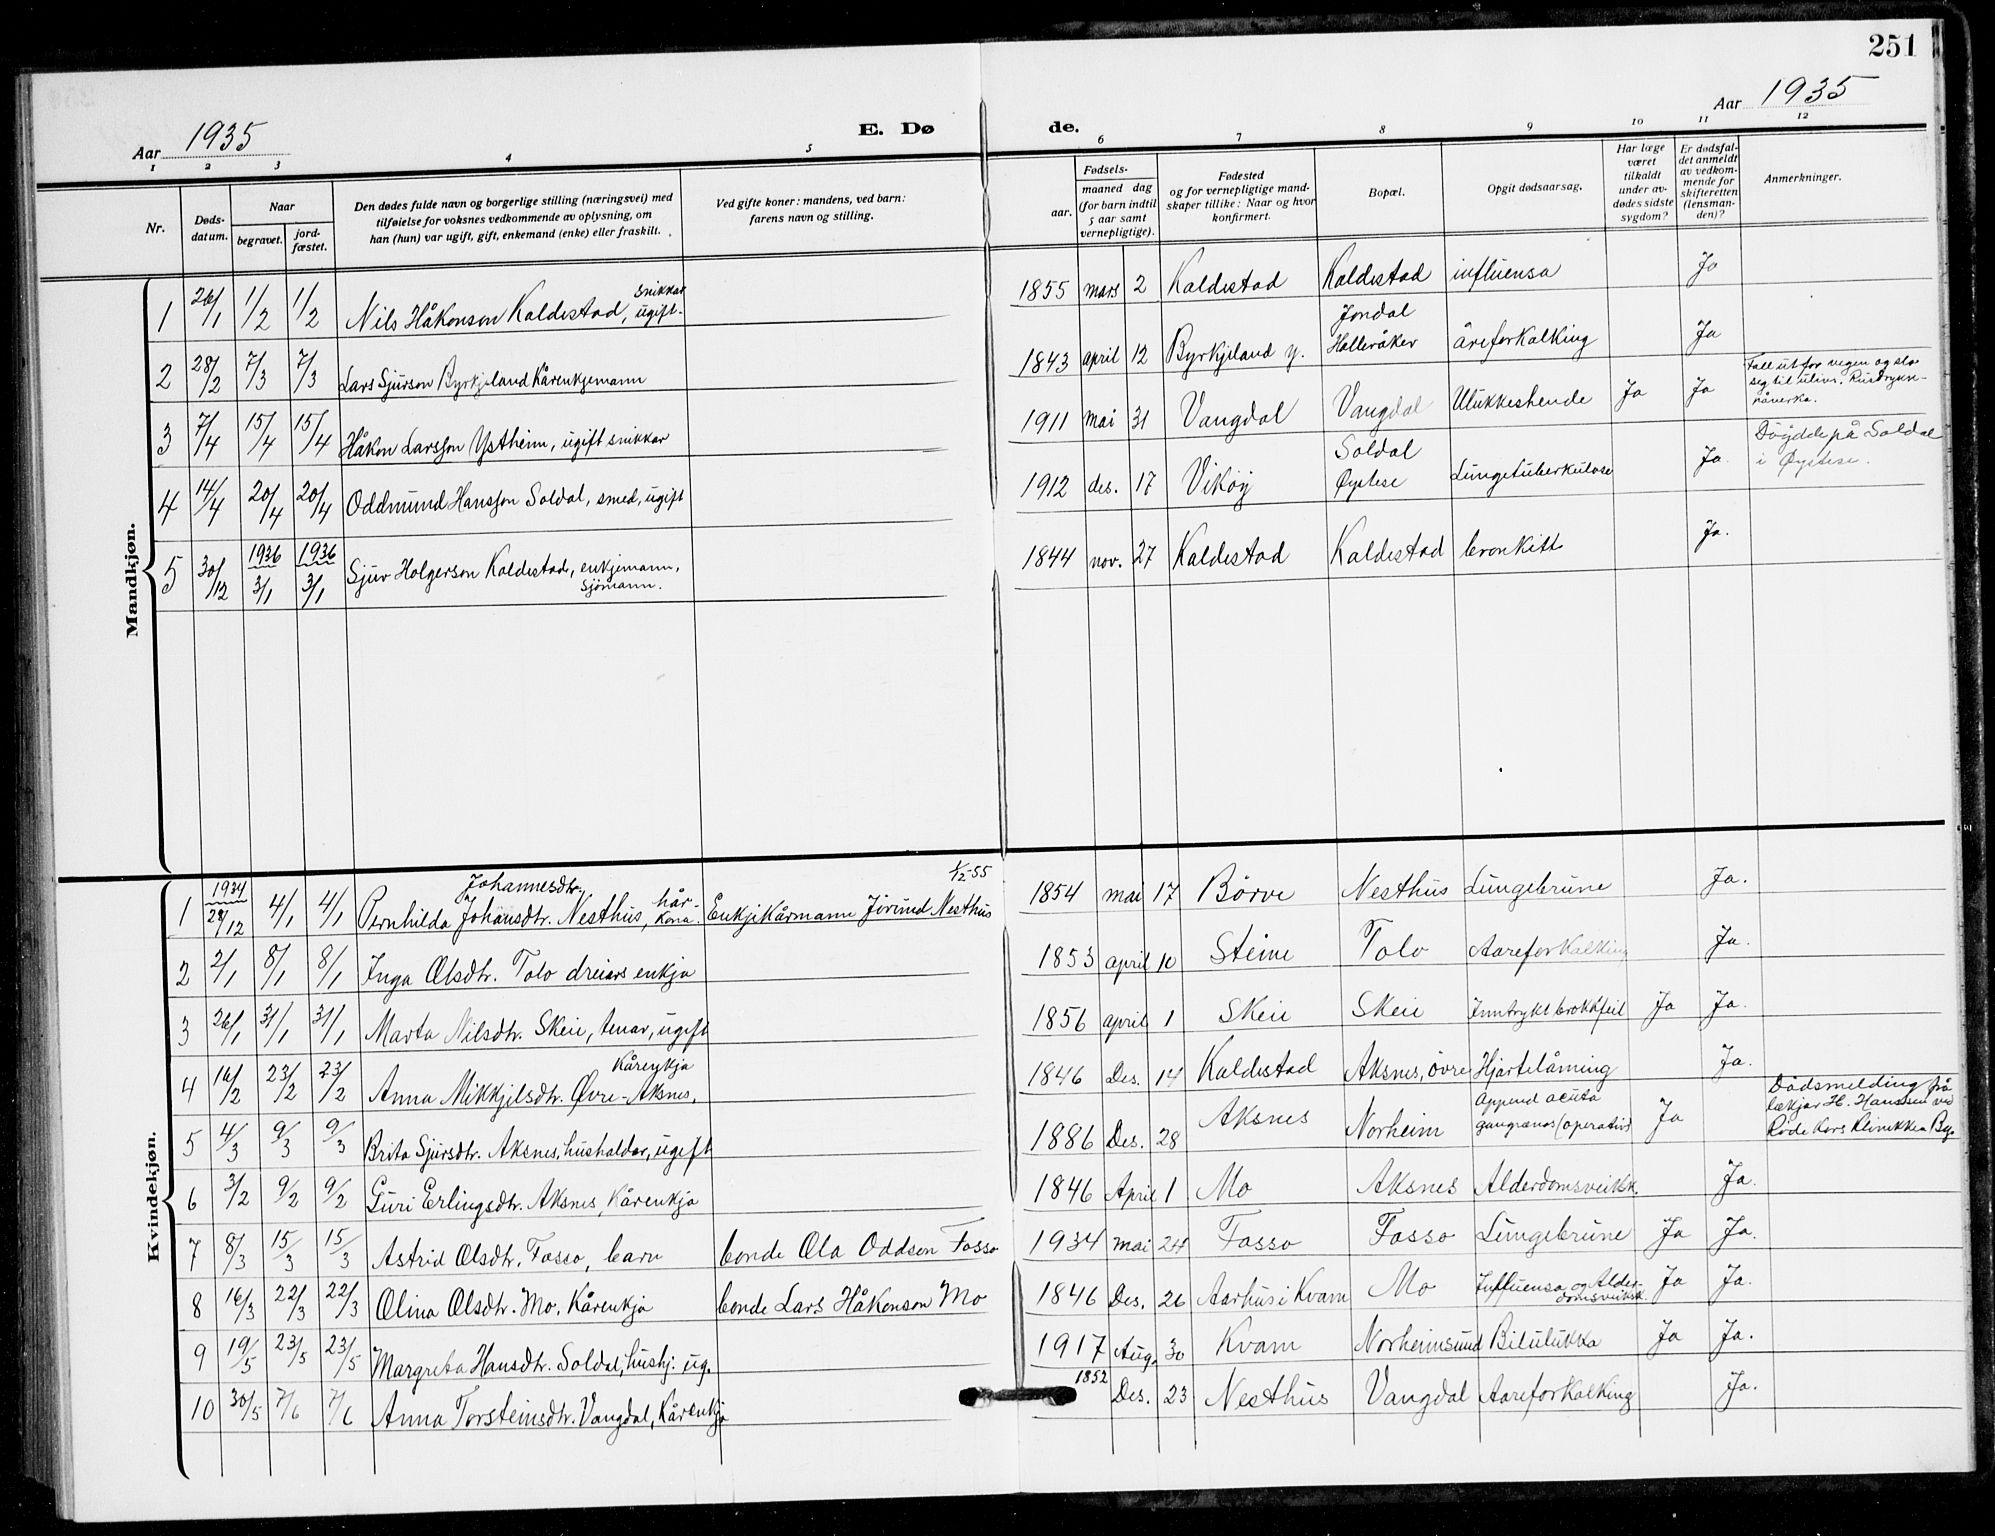 251
Aar 1935
E. Dø
de.
Aar 1935
1 2 3 4 5 6 7 8 9 10 11 12
Nr.
Døds-
datum.
Naar
begravet.
jord-
fæstet.
Den dødes fulde navn og borgerlige stilling (næringsvei) med
tilføielse for voksnes vedkommende av oplysning, om
han (hun) var ugift, gift, enkemand (enke) eller fraskilt.
Ved gifte koner: mandens, ved barn:
farens navn og stilling.
Fødsels-
aar.
maaned dag
(for barn indtil
5 aar samt
vernepligtige).
Fødested
og for vernepligtige mand-
skaper tillike: Naar og hvor
konfirmert.
Bopæl.
Opgit dødsaarsag.
Har læge
været
tilkaldt
under av-
dødes sidste
sygdom?
Er dødsfal-
det anmeldt
av vedkom-
mende for
skifteretten
(lensman-
den)?
Anmerkninger.
Mandkjøn.
1 26/1 1/2 1/2 Nils Håkonson Kaldestad, snikkar ugift. 1855 mars 2 Kaldestad Kaldestad influensa Ja
2 28/2 7/3 7/3 Lars Sjurson Byrkjeland Kårenkjemann 1843 april 12 Byrkjeland y. Jondal Halleråker åreforkalking Ja
3 7/4 15/4 15/4 Håkon Larsson Ystheim, ugift snikkar 1911 mai 31 Vangdal Vangdal Ulukkeshende Ja Ja Fall ut for vegen og slo
seg til ulivs.
4 14/4 20/4 20/4 Oddmund Hansson Soldal, smed, ugift 1912 des. 17 Vikøy Soldal Øystese Lungetuberkulose Ja. Döydde på Soldal
i Øystese.
5 30/12 1936 3/1 1936 3/1 Sjur Holgerson Kaldestad, enkjemann, sjömann. 1844 nov. 27 Kaldestad Kaldestad bronkitt Ja.
Kvindekjøn.
1 1934 28/12 4/1 4/1 Pernhilda Johansdtr. Johannesdtr. Nesthus, kår-kona. Enkje Kårmann Jörund Nesthus 1/12-55 1854 mai 17 Börve Nesthus Lungebrune Ja.
2 2/1 8/1 8/1 Inga Olsdtr. Tolo dreiars enkja 1853 april 10 Steine Tolo Aareforkalking Ja.
3 26/1 31/1 31/1 Marta Nilsdtr. Skeie, tenar, ugift 1856 april 1 Skeie Skeie Inntrykt brokkfeil Ja Ja.
4 16/2 23/2 23/2 Anna Mikkjelsdtr. Øvre-Aksnes, Kårenkja 1846 Des. 14 Kaldestad Aksnes, övre Hjartelåming Ja.
5 4/3 9/3 9/3 Brita Sjursdtr. Aksnes, hushaldar, ugift 1886 Des. 28 Aksnes Norheim Append acuta
gangrænos (operativ) Ja Dödsmelding frå
lækjar H. Hanssen ved
Røde Kors Klinikken Bg.
6 3/2 9/2 9/2 Guri Erlingsdtr. Aksnes, Kårenkja 1846 April 1 Mo Aksnes Alderdomsveiksk. Ja.
7 8/3 15/3 15/3 Astrid Olsdtr. Fosso, barn bonde Ola Oddson Fosso 1934 mai 24 Fosso Fosso Lungebrune Ja Ja.
8 16/3 22/3 22/3 Olina Olsdtr. Mo, Kårenkja bonde Lars Håkonson Mo 1846 Des. 26 Aarhus i Kvam Mo Influensa og Alder-
domsveiksk. Ja Ja.
9 19/5 23/5 23/5 Margreta Hansdtr. Soldal, hushj. ug. 1917 Aug. 30 Kvam Norheimsund Bilulukka Ja Ja.
10 30/5 7/6 7/6 Anna Torsteinsdtr. Vangdal, Kårenkja 1852 Des. 23 Nesthus Vangdal Aareforkalking Ja.